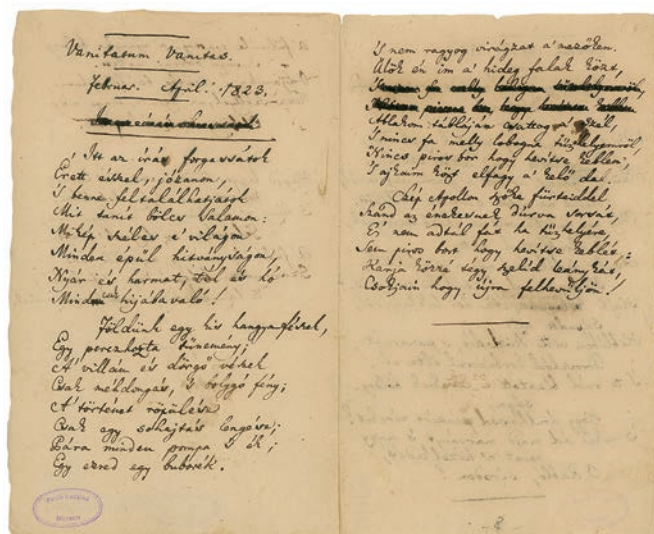 Vanitatum Vanitas.
Februar. April. 1823.
Itt az írás forgassátok
Érett ésszel, józanon,
S benne feltalálhatjátok
Mit tanít bölcs Salamon:
Mikép széles e' világon
Minden épül hitványságon,
Nyár és harmat, tél és hó
Mind csak hijába való!
Földünk egy kis hangyafészek,
Egy perczhozta tünemény;
A' villám és dörgő vészek
Csak méhdongás, 's bolygó fény;
A' történet röpülése
Csak egy sohajtás lengése;
Pára minden pompa 's ék;
Egy ezred egy buborék.
'S nem ragyog virágzat a' mezőken.
Ülök én im a' hideg falak közt,
Ablakom tábláján csattog a' szél,
'S nincs fa melly lobogna tüzhelyemről,
Nincs piros bor hogy hevítse keblem,
'S ajkaim közt elfagy a' kelő dal.
Szép Apollon szőke fürteiddel
Szánd az énekesnek durva sorsát,
És nem adtál fát ha tüzhelyére,
Sem piros bort hogy hevítse keblét:
Karja közzé tégy szelíd leánykát,
Csókjain hogy újra felhevűljön!